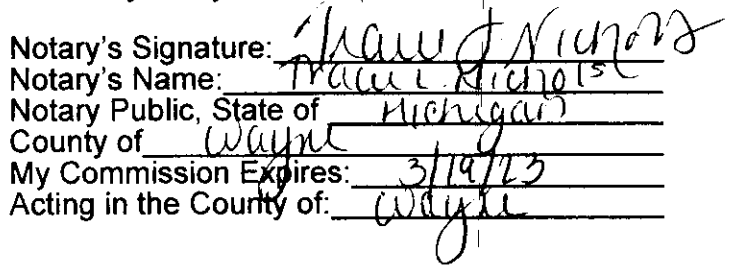 Notary's Signature: Nichols
Notary's Name: Nichols
Notary Public, State of Michigan
County of Wayne
My Commission Expires: 3/19/23
Acting in the County of: Wayne